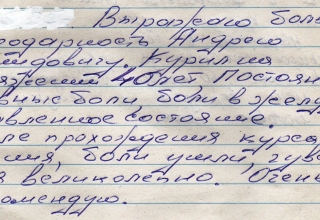 Выражаю боль
годарность Андрею
идовичу. Курил на
яжении 40 лет. Постоян
вные боли, боли в желу
авленное состояние.
ле прохождения курса
ния, боли ушли, чувс
я великолепно. Очень
омендую.